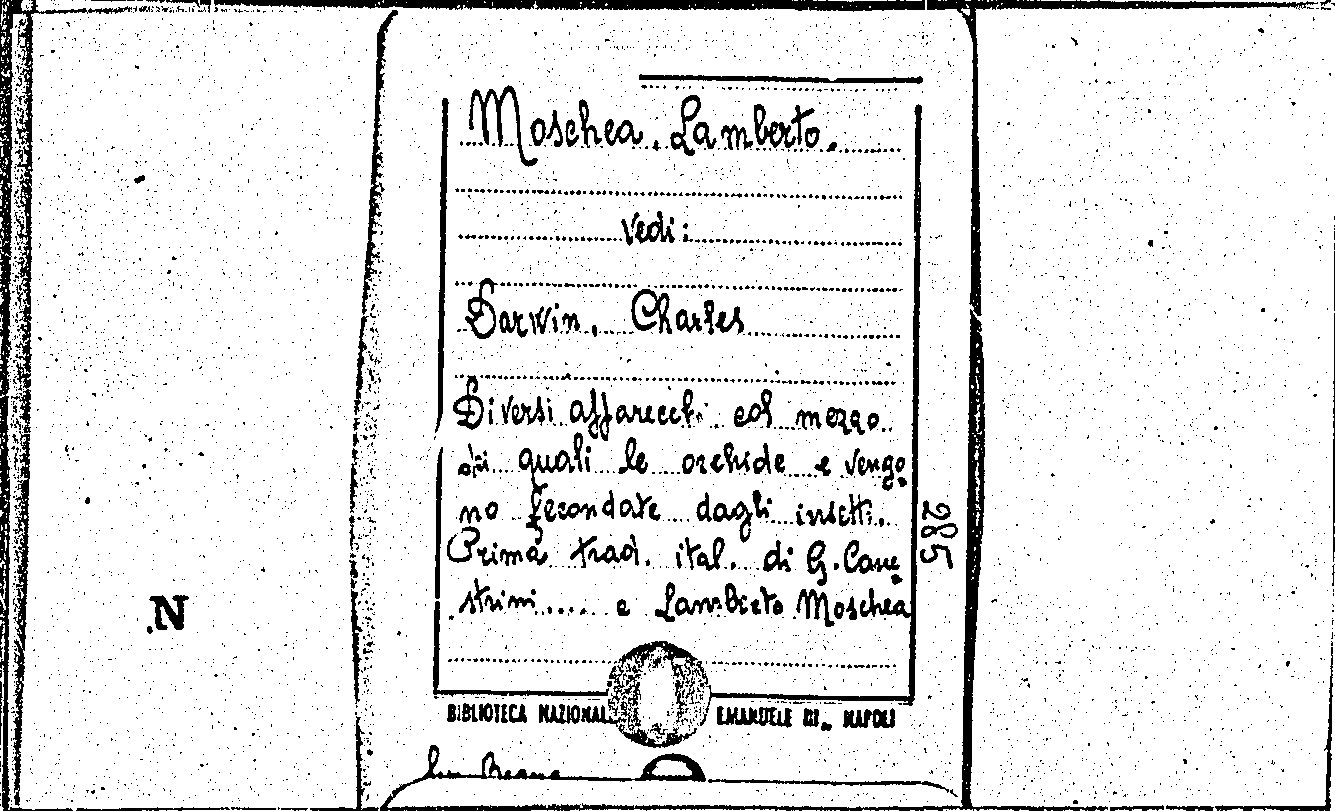 Moschea, Lamberto.
vedi:
Darwin, Charles
Diversi apparecchi col mezzo
dei quali le orchidee vengo-
no fecondate dagli insetti.
Prima trad. ital. di G. Cane-
strini..... e Lamberto Moschea
285
.N
BIBLIOTECA NAZIONAL EMANUELE III - NAPOLI